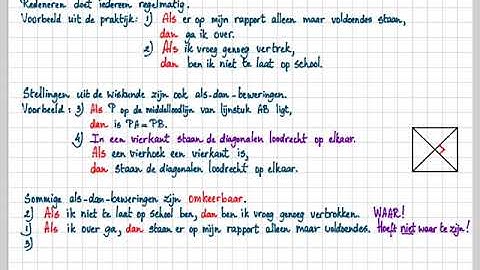 Redeneren doet iedereen regelmatig.
Voorbeeld uit de praktijk: 1) Als er op mijn rapport alleen maar voldoendes staan,
dan ga ik over.
2) Als ik vroeg genoeg vertrek,
dan ben ik niet te laat op school.
Stellingen uit de wiskunde zijn ook als-dan-beweringen.
Voorbeeld: 3) Als P op de middelloodlijn van lijnstuk AB ligt,
dan is PA=PB.
4) In een vierkant staan de diagonalen loodrecht op elkaar.
Als een vierhoek een vierkant is,
dan staan de diagonalen loodrecht op elkaar.
Sommige als-dan-beweringen zijn omkeerbaar.
2) Als ik niet te laat op school ben, dan ben ik vroeg genoeg vertrokken. WAAR!
1) Als ik over ga, dan staan er op mijn rapport alleen maar voldoendes. Hoeft niet waar te zijn!
3)